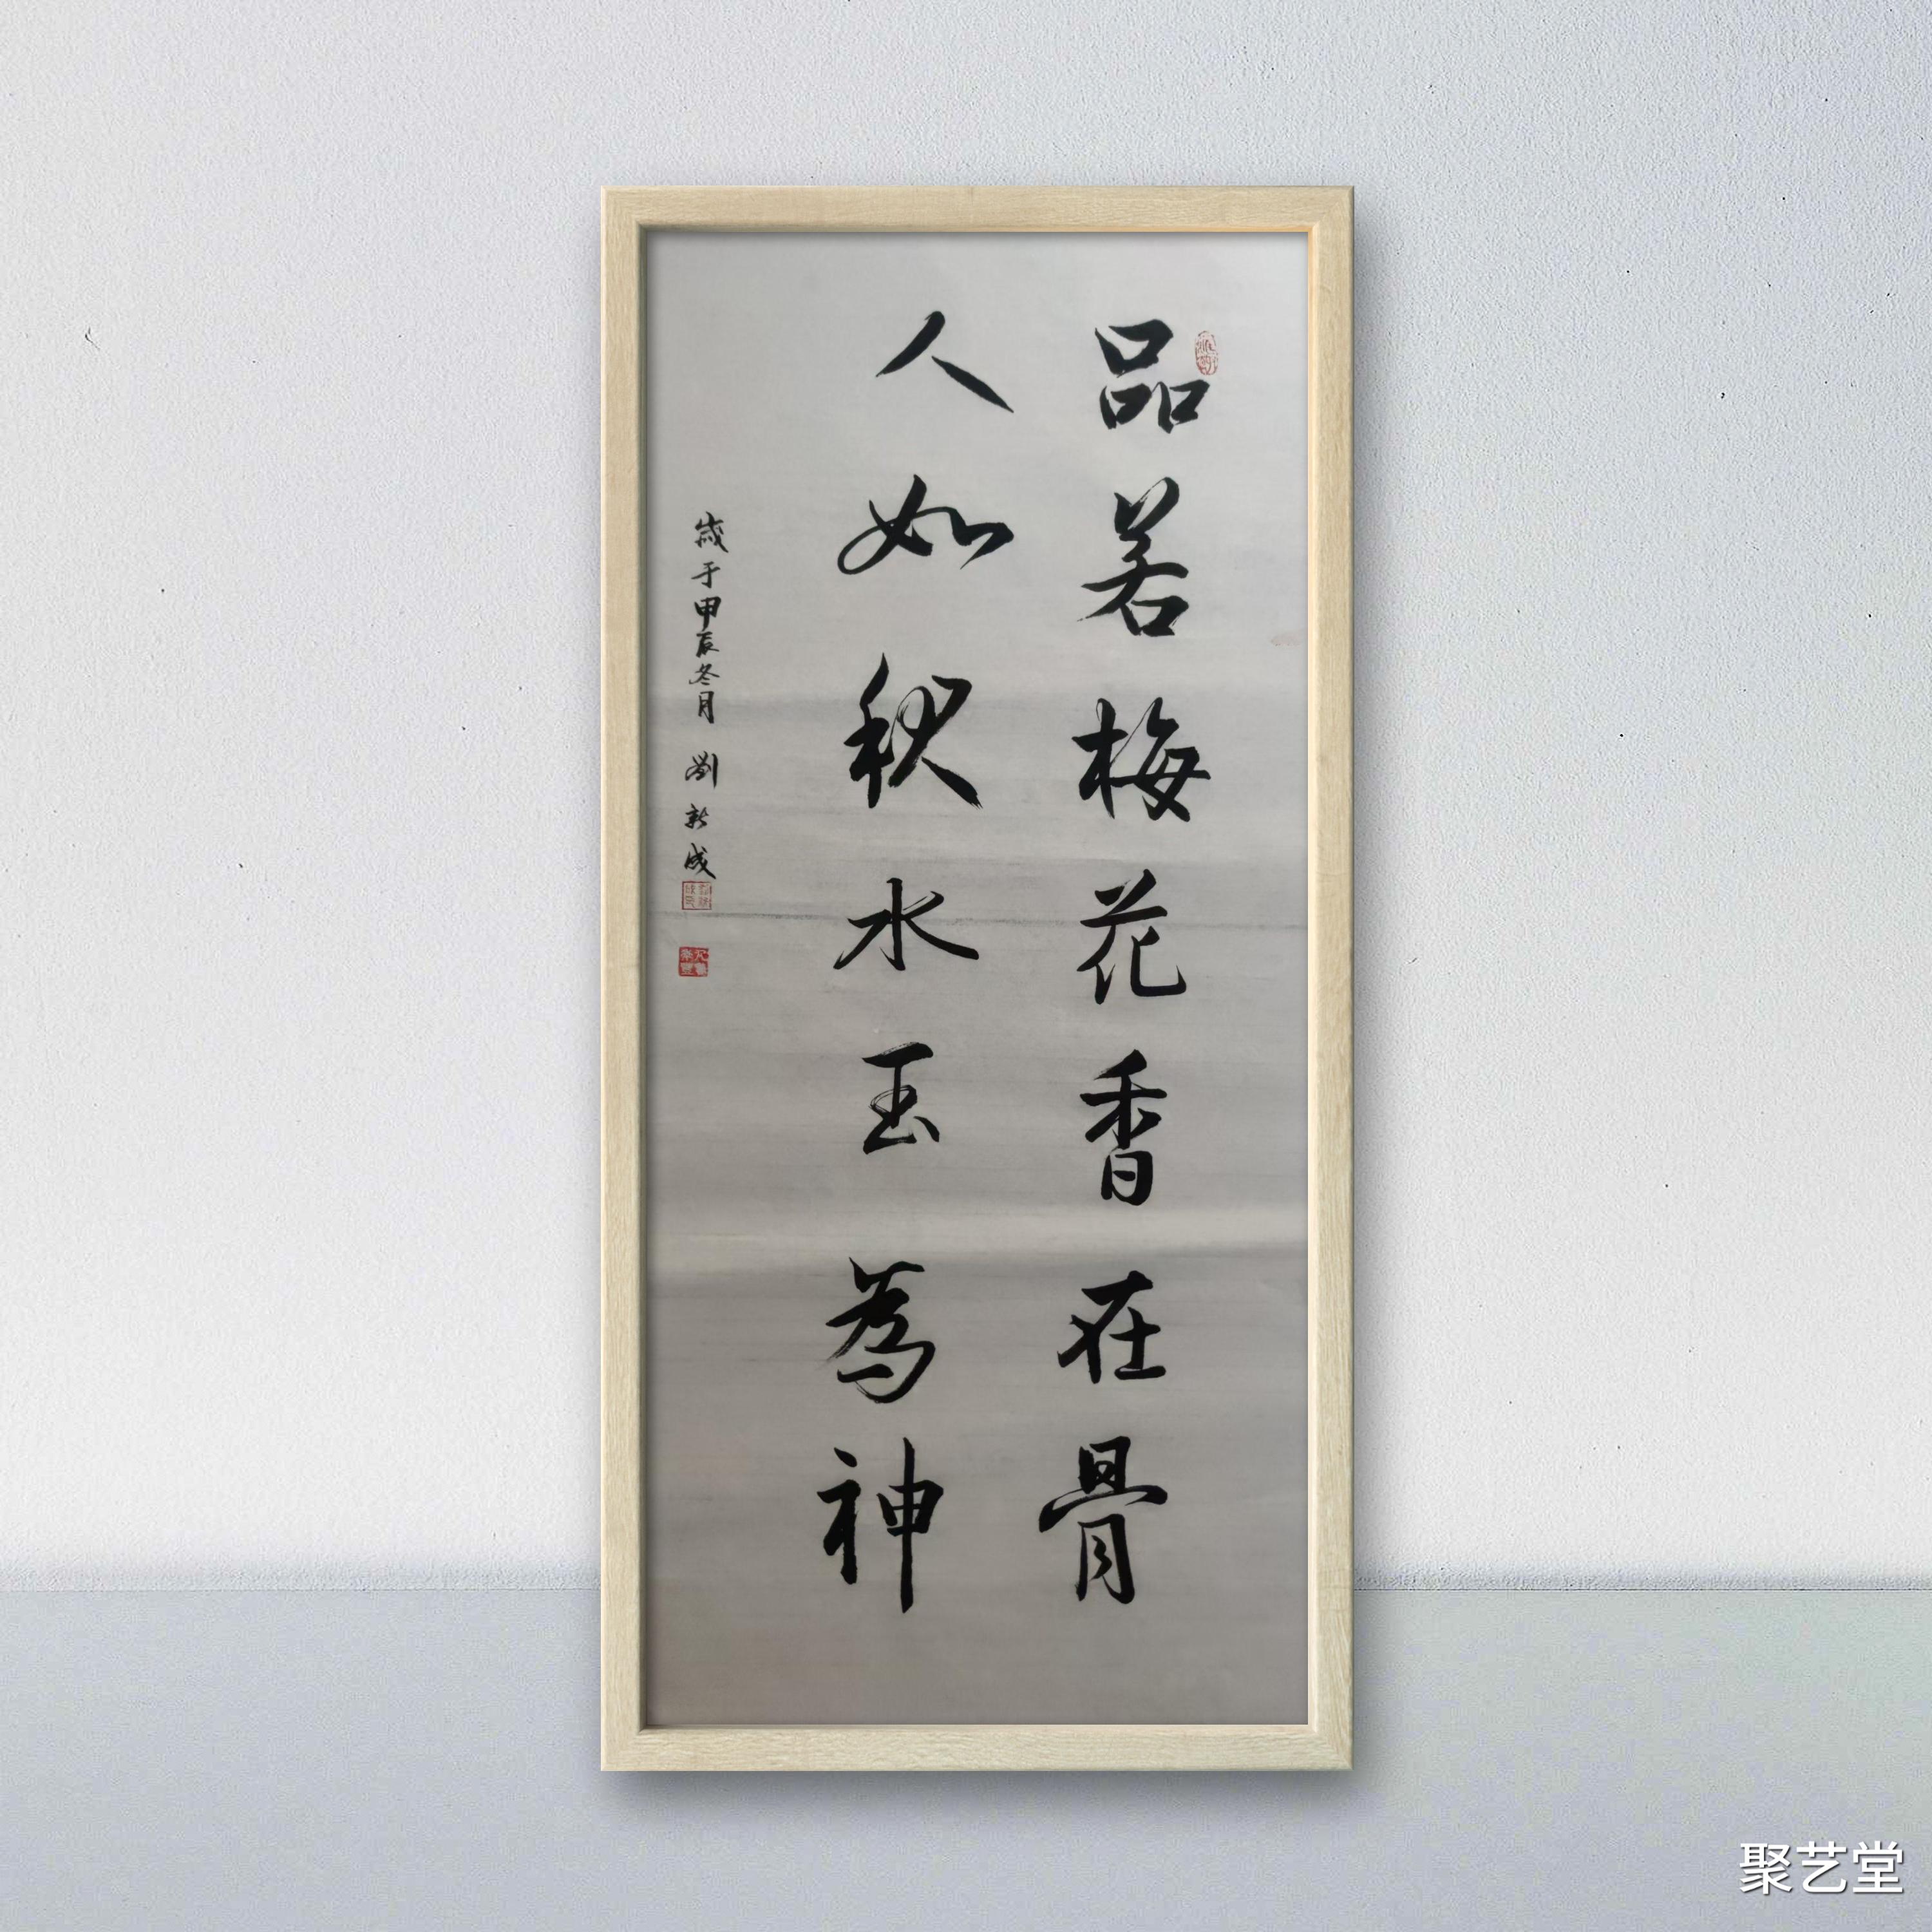 品若梅花香在骨
人如秋水玉為神
歲于甲辰冬月 劉新成
聚艺堂